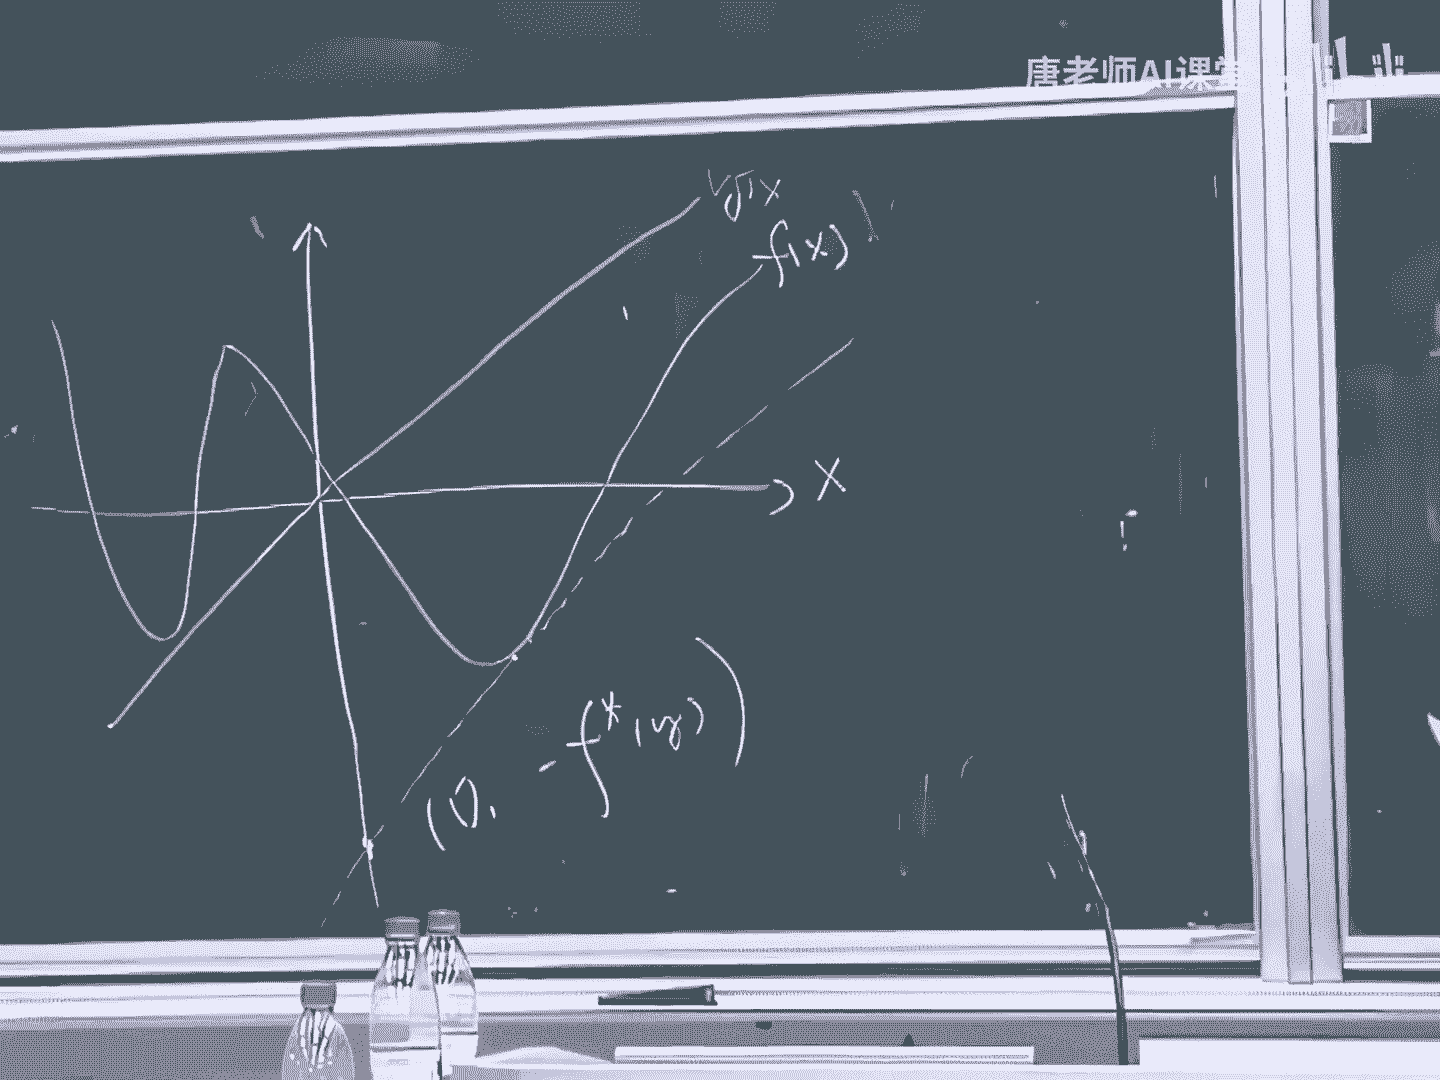 唐老师AI课堂
yᵀx
f(x)
x
(0, -f*(y))